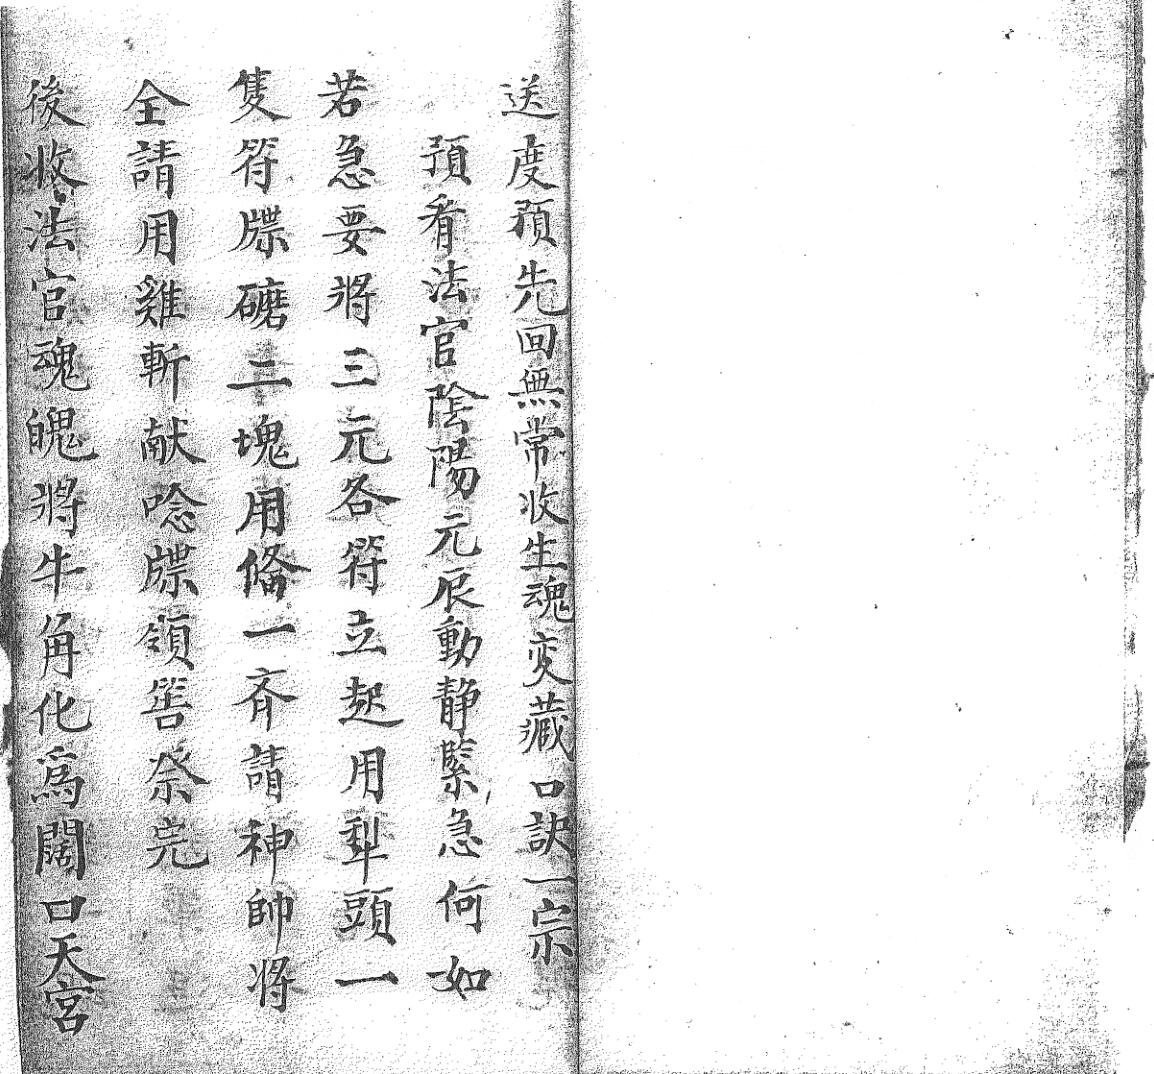 送度預先回無常收生魂变藏口訣一宗
預看法官陰陽元辰動静緊急何如
若急要將三元各符立起用犁頭一
隻符牒磄二塊用俻一齐請神帥将
全請用雞斬献唸牒領筶祭完
後收法官魂魄將牛角化為闊口天宮